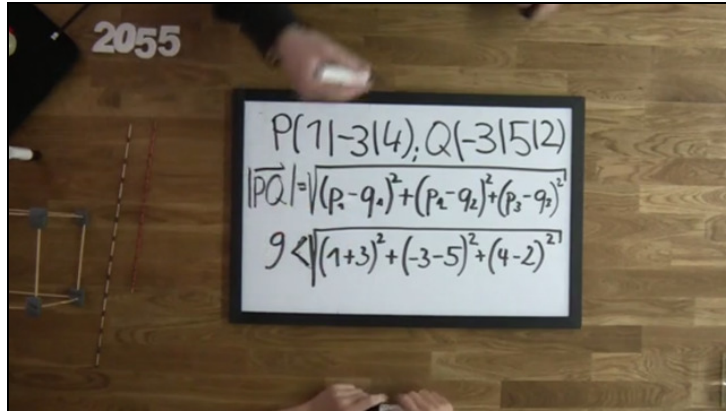 2055
P(1|-3|4); Q(-3|5|2)
|PQ⃗|=√((p₁-q₁)²+(p₂-q₂)²+(p₃-q₃)²)
9<√((1+3)²+(-3-5)²+(4-2)²)